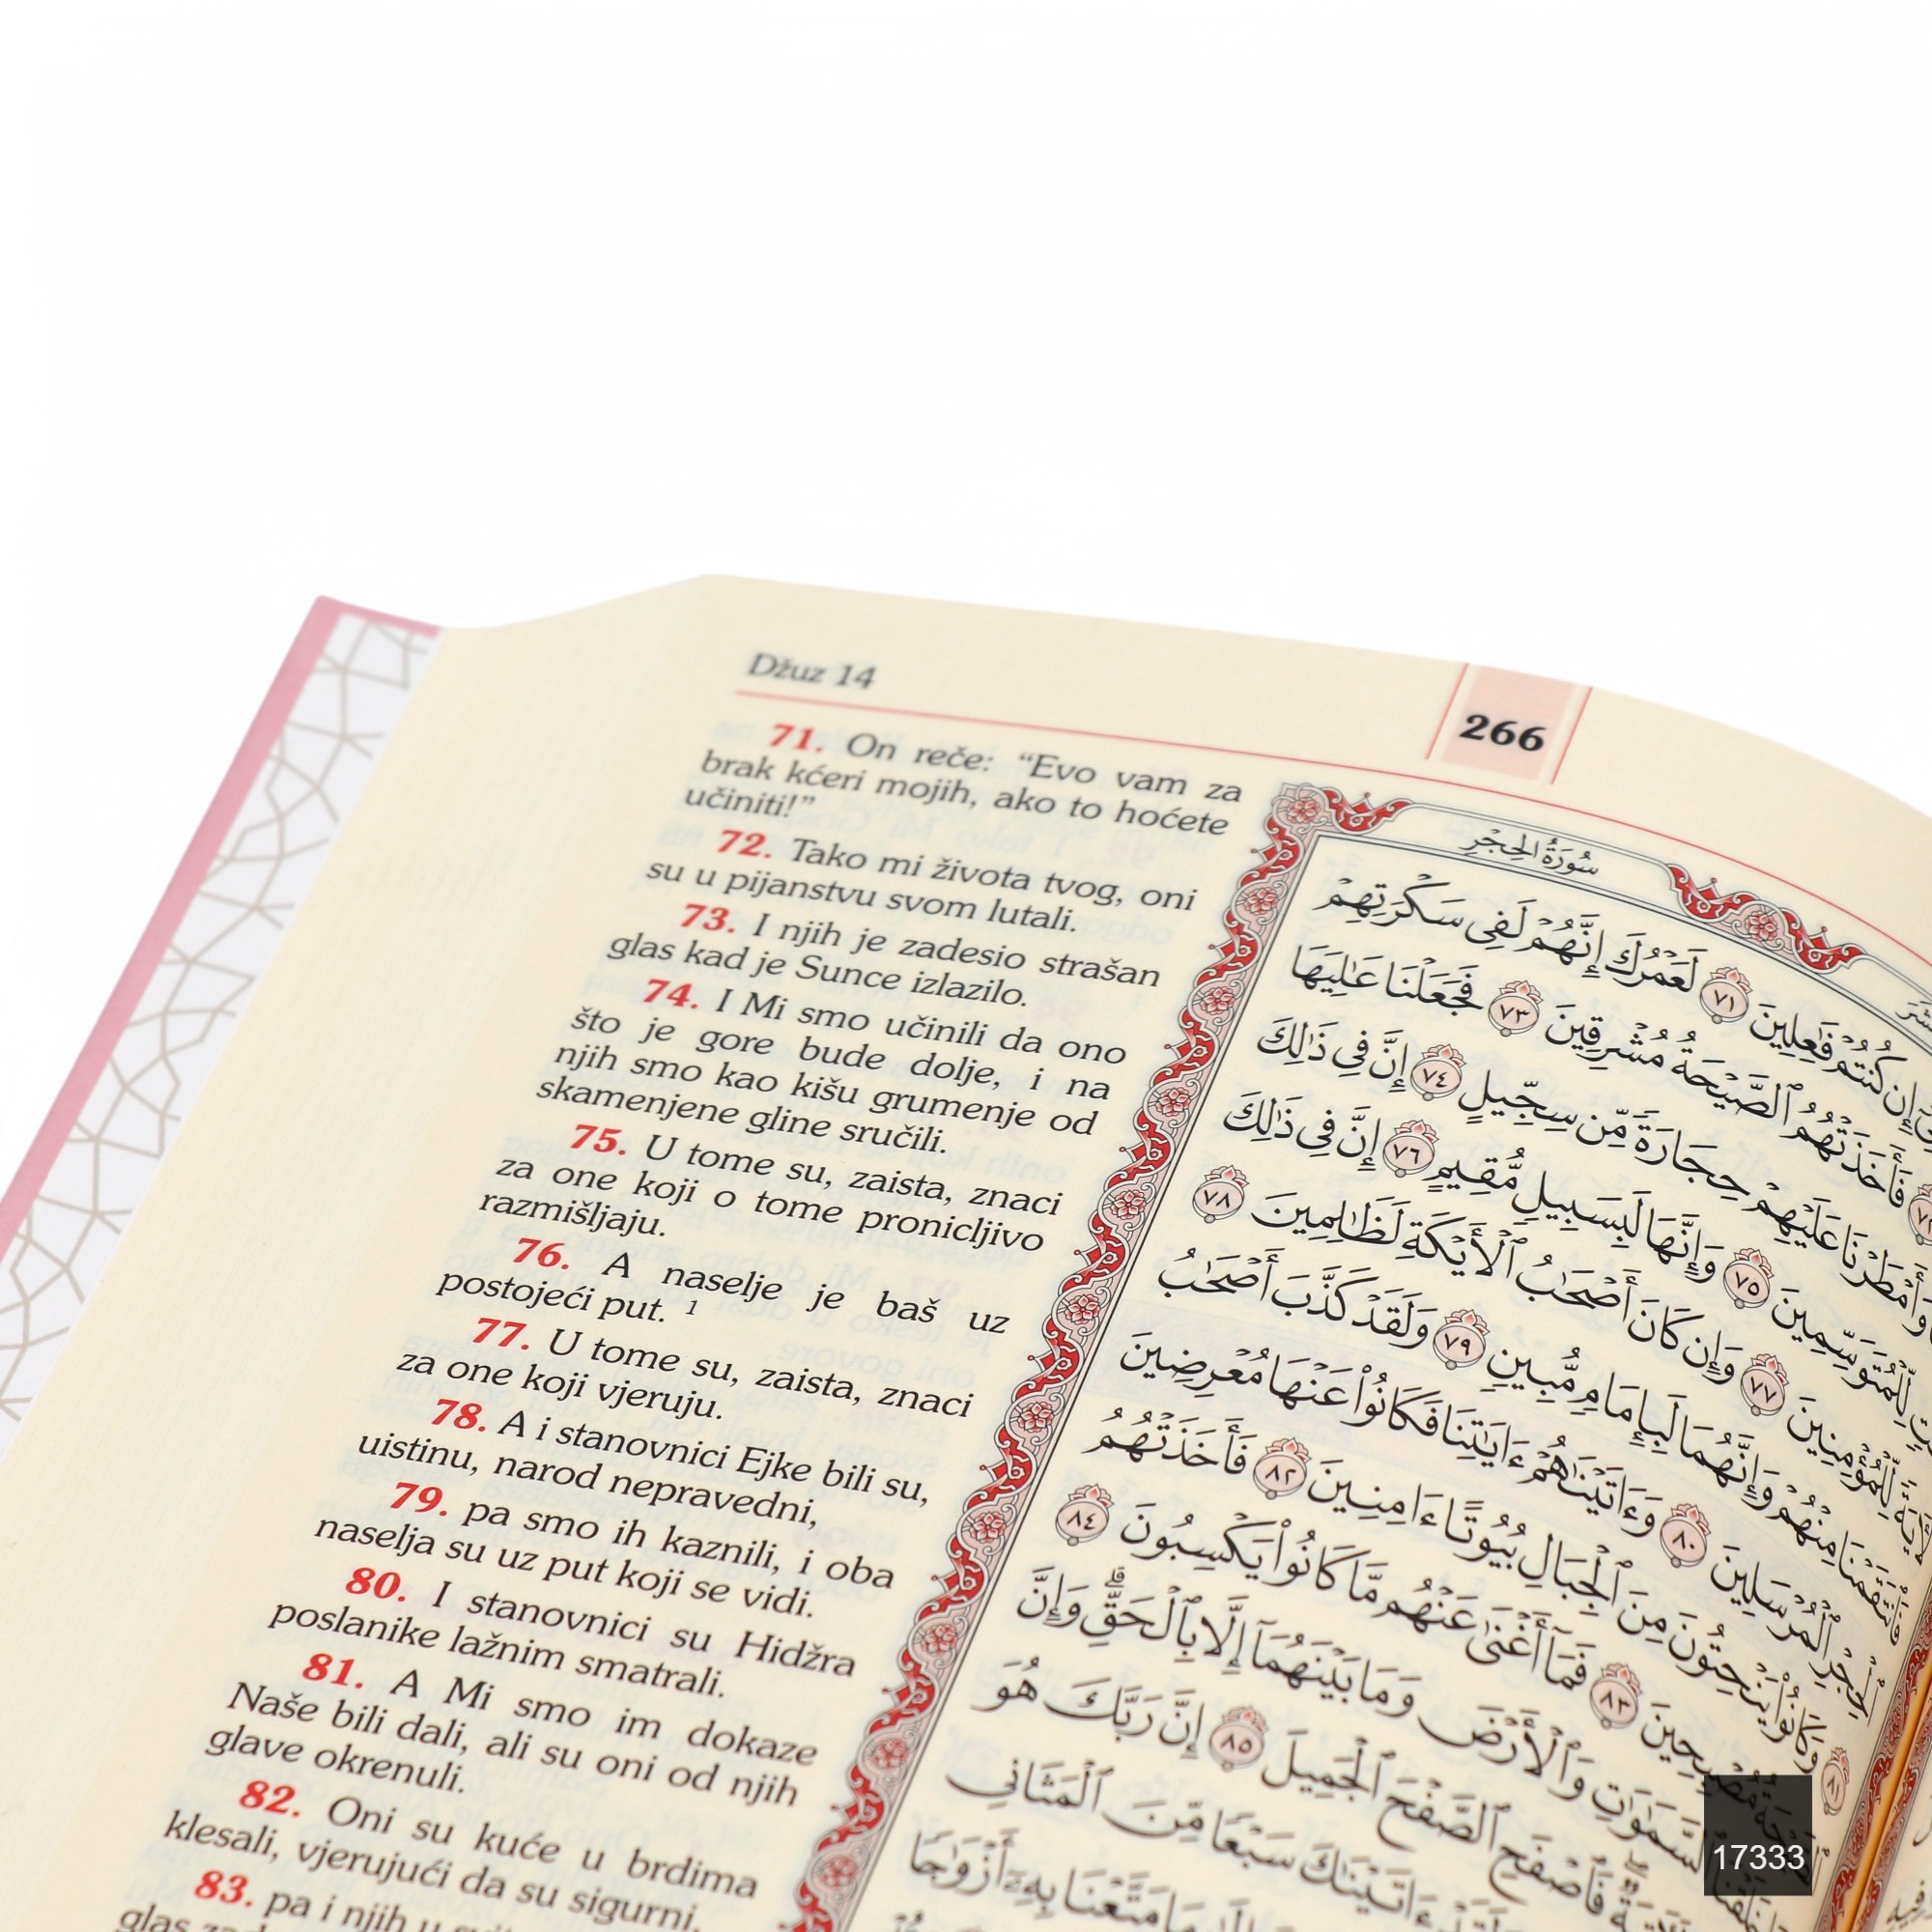 Džuz 14
266
71. On reče: “Evo vam za
brak kćeri mojih, ako to hoćete
učiniti!”
72. Tako mi života tvog, oni
su u pijanstvu svom lutali.
73. I njih je zadesio strašan
glas kad je Sunce izlazilo.
74. I Mi smo učinili da ono
što je gore bude dolje, i na
njih smo kao kišu grumenje od
skamenjene gline sručili.
75. U tome su, zaista, znaci
za one koji o tome pronicljivo
razmišljaju.
76. A naselje je baš uz
postojeći put. 1
77. U tome su, zaista, znaci
za one koji vjeruju.
78. A i stanovnici Ejke bili su,
uistinu, narod nepravedni,
79. pa smo ih kaznili, i oba
naselja su uz put koji se vidi.
80. I stanovnici su Hidžra
poslanike lažnim smatrali.
81. A Mi smo im dokaze
Naše bili dali, ali su oni od njih
glave okrenuli.
82. Oni su kuće u brdima
klesali, vjerujući da su sigurni,
83. pa i njih u
glas
سُورَةُ الحِجْرِ
إِن كُنتُمْ فَٰعِلِينَ ٧١ لَعَمْرُكَ إِنَّهُمْ لَفِى سَكْرَتِهِمْ
فَأَخَذَتْهُمُ ٱلصَّيْحَةُ مُشْرِقِينَ ٧٣ فَجَعَلْنَا عَٰلِيَهَا
وَأَمْطَرْنَا عَلَيْهِمْ حِجَارَةً مِّن سِجِّيلٍ ٧٤ إِنَّ فِى ذَٰلِكَ
لِّلْمُتَوَسِّمِينَ ٧٥ وَإِنَّهَا لَبِسَبِيلٍ مُّقِيمٍ ٧٦ إِنَّ فِى ذَٰلِكَ
لِّلْمُؤْمِنِينَ ٧٧ وَإِن كَانَ أَصْحَٰبُ ٱلْأَيْكَةِ لَظَٰلِمِينَ ٧٨
فَٱنتَقَمْنَا مِنْهُمْ وَإِنَّهُمَا لَبِإِمَامٍ مُّبِينٍ ٧٩ وَلَقَدْ كَذَّبَ أَصْحَٰبُ
ٱلْحِجْرِ ٱلْمُرْسَلِينَ ٨٠ وَءَاتَيْنَٰهُمْ ءَايَٰتِنَا فَكَانُوا۟ عَنْهَا مُعْرِضِينَ
٨١ وَكَانُوا۟ يَنْحِتُونَ مِنَ ٱلْجِبَالِ بُيُوتًا ءَامِنِينَ ٨٢ فَأَخَذَتْهُمُ
مُصْبِحِينَ ٨٣ فَمَآ أَغْنَىٰ عَنْهُم مَّا كَانُوا۟ يَكْسِبُونَ ٨٤
ٱلسَّمَٰوَٰتِ وَٱلْأَرْضَ وَمَا بَيْنَهُمَآ إِلَّا بِٱلْحَقِّ وَإِنَّ
فَٱصْفَحِ ٱلصَّفْحَ ٱلْجَمِيلَ ٨٥ إِنَّ رَبَّكَ هُوَ
ءَاتَيْنَٰكَ سَبْعًا مِّنَ ٱلْمَثَانِى
مَا مَتَّعْنَا بِهِۦٓ أَزْوَٰجًا
17333